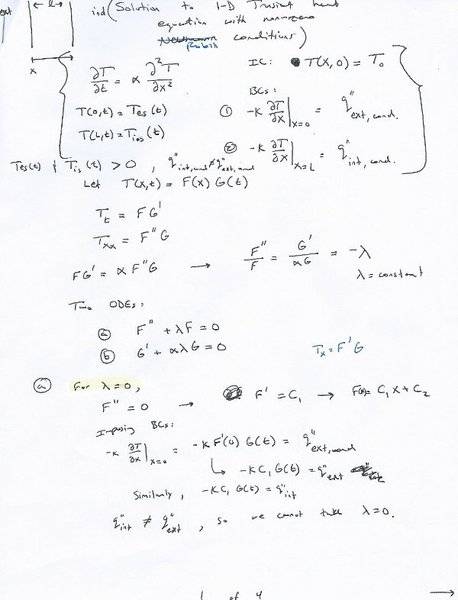 ext
l
x
(Solution to 1-D Transient heat
equation with nonzero
Robin conditions)
∂T/∂t = α ∂²T/∂x²
IC: T(x,0) = T₀
T(0,t) = Tes(t)
BCs:
① -K ∂T/∂x |x=0 = q″ext,cond.
T(L,t) = Tis(t)
② -K ∂T/∂x |x=L = q″int,cond.
Tes(t) & Tis(t) > 0, q″int,cond ≠ q″ext,cond
Let T(x,t) = F(x) G(t)
Tt = FG'
Txx = F″G
FG' = αF″G → F″/F = G'/αG = -λ
λ = constant
Two ODEs:
ⓐ F″ + λF = 0
ⓑ G' + αλG = 0
Tx = F'G
ⓐ For λ=0,
F″ = 0 → F' = C₁ → F(x) = C₁X + C₂
Imposing BCs:
-K ∂T/∂x |x=0 = -KF'(0) G(t) = q″ext,cond
↳ -KC₁G(t) = q″ext
Similarly, -KC₁G(t) = q″int
q″int ≠ q″ext, so we cannot take λ=0.
1 of 4 →